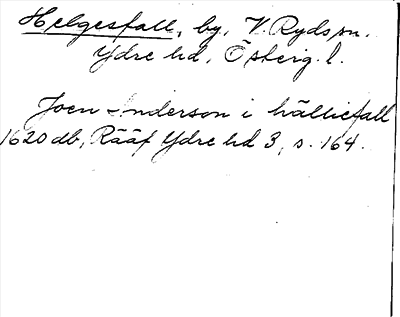 Helgesfall, by, V. Ryds sn.
Ydre hd, Österg. l.
Joen Anderson i hälliefall
1620 db, Rääf Ydre hd 3, s. 164.